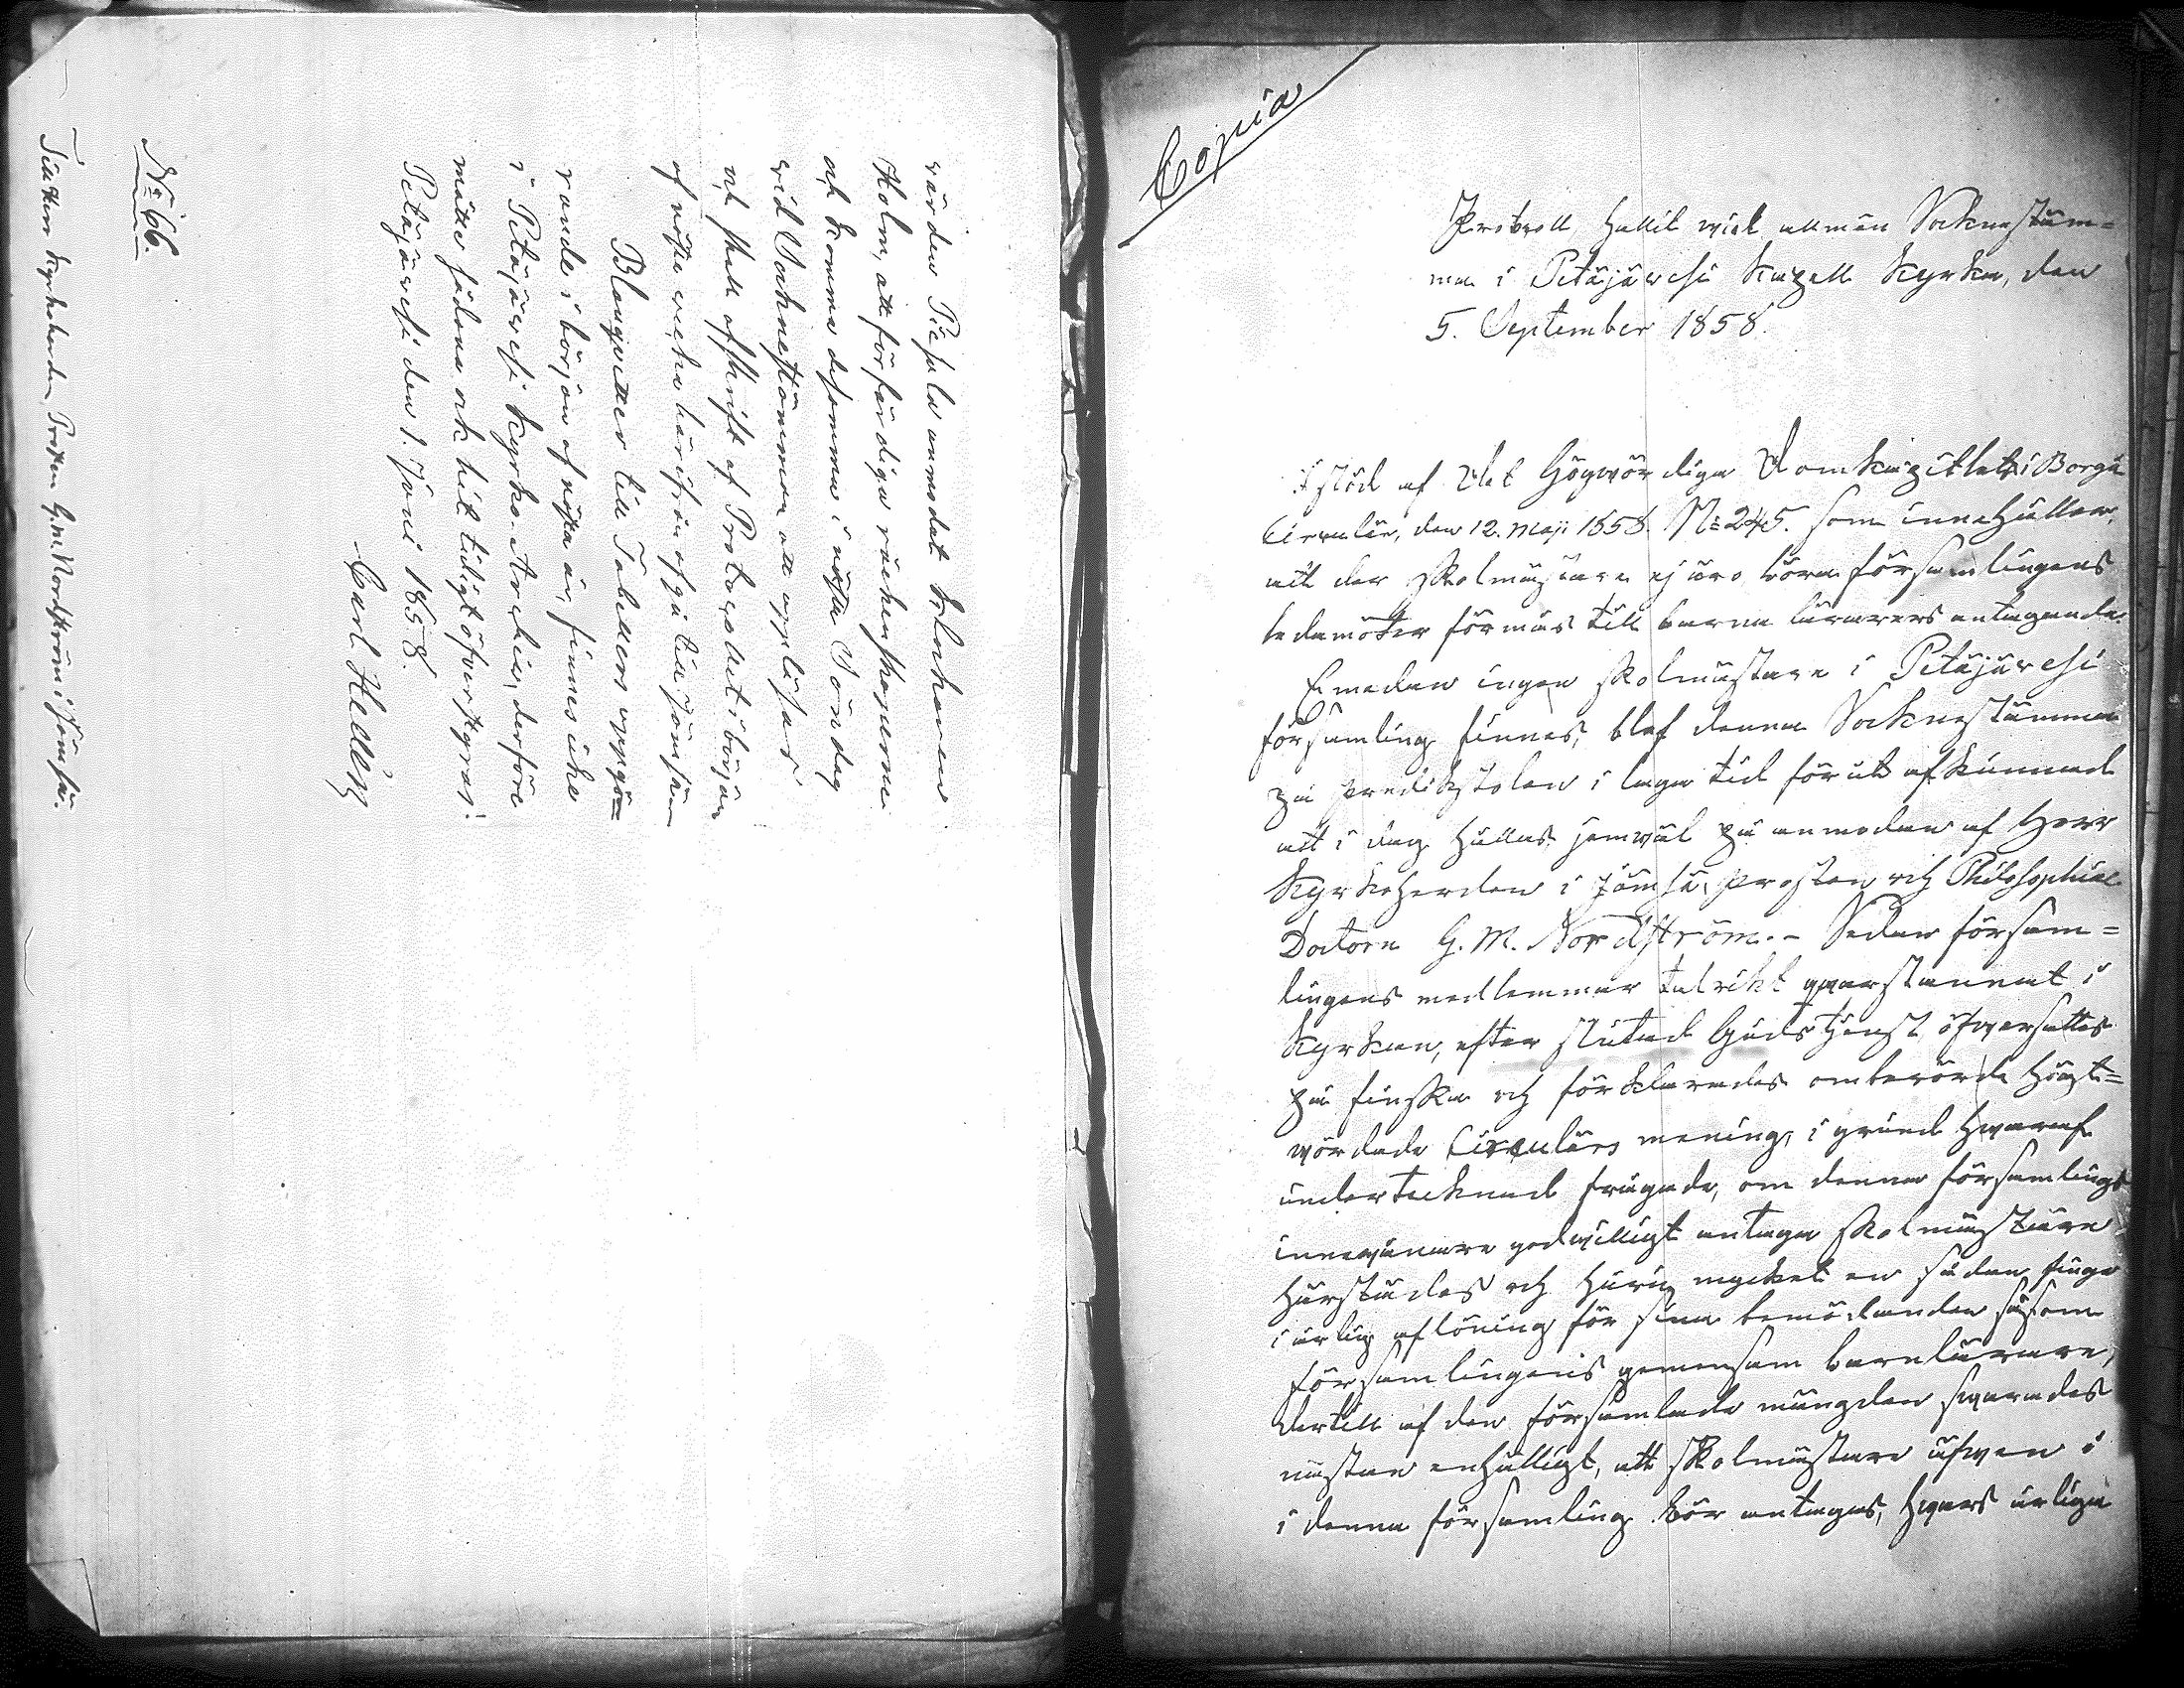 värden Piesala anmodat klockaren
Holm, att förfärdiga räkenskaperna
och komma desamma i nästa Söndag
vid Socknestämman att uppläsas
och skall afskrift af Protocollet i början
af nästa vecka härifrån afgå till Jämsä
Blanquetter till Tabellers uppgö=
rande i början af nästa år, finnes icke
i Petäjävesi kyrko-Archiv, derföre
måtte sådana ock hit tidigt öfverstyras!
Petäjävesi den 1. Juni 1858.
Carl Helling
N:o 66.
Tit Herr Kyrkoherden Prosten G. M. Nordström i Jämsä.
Copia
Protocoll hållit wid allmän Socknestäm=
ma i Petäjäwesi Kapell Kyrka, den
5. September 1858.
I stöd af Det Högwördiga Domkapitlets i Borgå
Circulär, den 12. Maji 1858. N:o 245. som innehåller,
att der skolmästare ej äro, böra församlingens
ledamöter förmås till barna lärarers antagande.
Emedan ingen skolmästare i Petäjäwesi
församling finnes, blef denna Socknestämma
på predikstolen i laga tid förut afkunnad
att i dag hållas jemwäl på anmodan af Herr
Kyrkoherden i Jämsä, prosten och Philosophiæ
Doctorn G. M. Nordström. - Sedan försam=
lingens medlemmar talrikt qwarstannat i
Kyrkan, efter slutad Gudstjenst, öfwersattes
på finska och förklarades omberörde Högt=
wördade Circulärs mening, i grund hwaraf
undertecknad frågade, om denna församlings
innewånare godwilligt antaga skolmästare
härstädes och huru mycket en sådan finge
i årlig aflöning för sina bemödanden såsom
församlingens gemensam barnlärare,
dertill af den församlade mängden swarades
nästan enhälligt, att skolmästare äfwen i
i denna församling bör antagas, hwars årliga